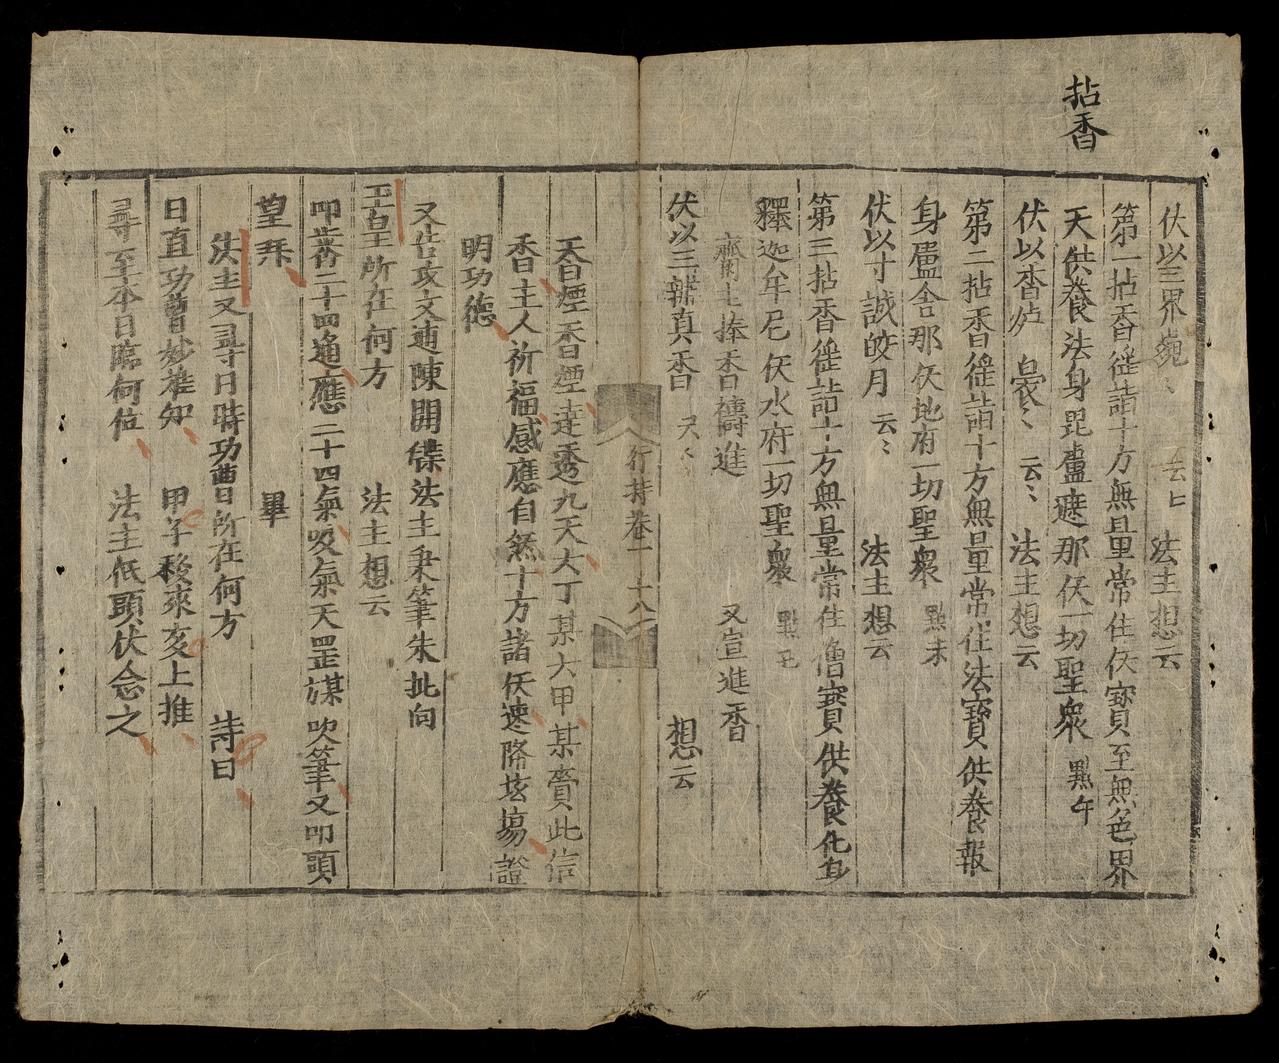 拈香
伏以三界巍〻 云〻 法主想云
第一拈香徃詣十方無量常住仸寳至無色界
天供養法身毘盧遮那仸一切聖衆 點午
伏以香炉裊〻 云〻 法主想云
第二拈香徃詣十方無量常住法寳供養報
身盧舍那仸地府一切聖衆 點未
伏以寸誠皎月 云〻 法主想云
第三拈香徃詣十方無量常住僧寳供養化身
釋迦牟尼仸水府一切聖衆
齋主捧香禱進 又宣進香
伏以三辨真香 想云
行持卷一 十八
香煙香煙達透九天大丁某大甲某賣此信
香主人祈福感應自然十方諸仸速降垓塲證
明功德
又告攻文通陳開牒法主秉筆朱批向
玉皇所在何方 法主想云
叩齒二十四通應二十四氣吸氣天罡謀吹筆又叩頭
望拜 畢
法主又尋日時功曹所在何方 詩曰
日直功曹妙難知 甲午移來亥上推
尋至本日臨何位 法主低頭伏念之